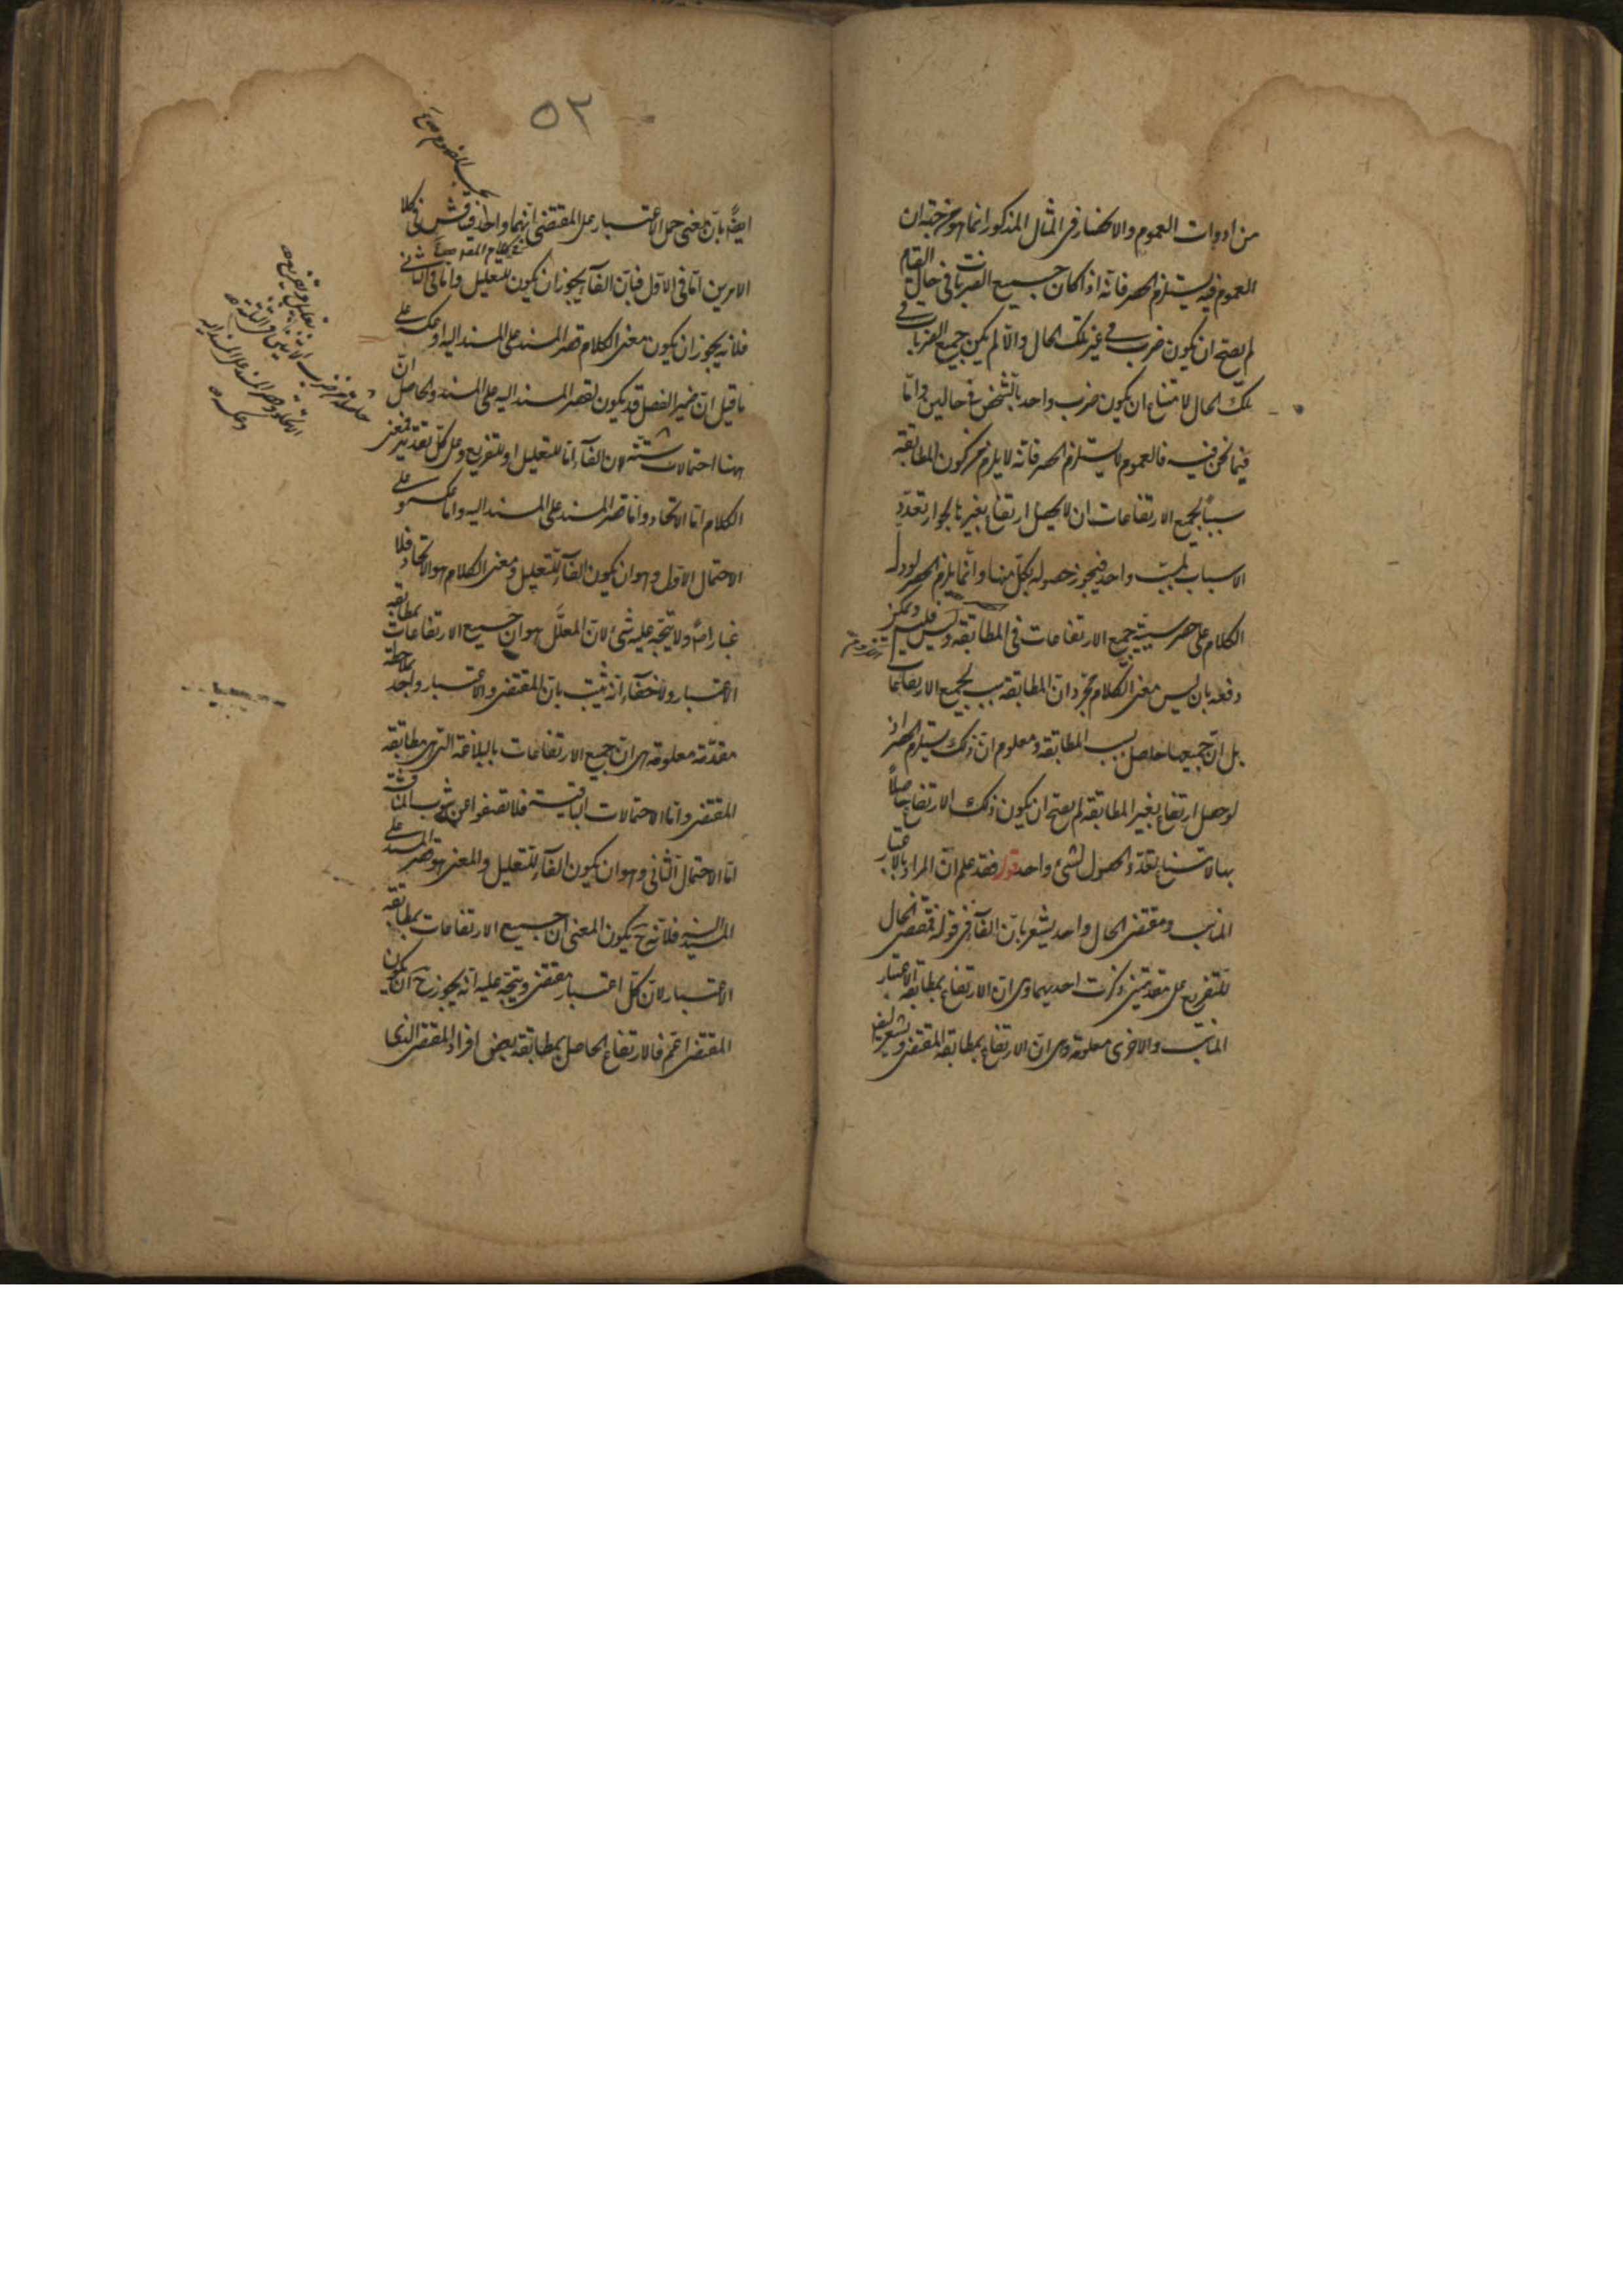 من ادوات العموم والانحصار فى المثال المذكور انما هو من جهة ان
العموم فيه يستلزم الحصر فانه اذا كان جميع الضربات فى حال القيام
لم يصح ان يكون ضرب فى غير تلك الحال والا لم يكن جميع الضربات فى
تلك الحال لامتناع ان يكون ضرب واحد بالشخص فى حالين واما
فيما نحن فيه فالعموم لا يستلزم الحصر فانه لا يلزم من كون المطابقة
سببا لجميع الارتفاعات ان لا يحصل ارتفاع بغيرها لجواز تعدد
الاسباب لمسبب واحد فيجوز حصوله بكل منها وانما يلزم الحصر لو دل
الكلام على حصر سببية جميع الارتفاعات فى المطابقة وليس فليس ويمكن
دفعه بان ليس معنى الكلام مجرد ان المطابقة سبب لجميع الارتفاعات
بل ان جميعها حاصل بسبب المطابقة ومعلوم ان ذلك يستلزم الحصر اذ
لو حصل ارتفاع بغير المطابقة لم يصح ان يكون ذلك الارتفاع حاصلا
بها لامتناع تعدد الحصول لشئ واحد قوله فقد علم ان المراد بالاعتبار
المناسب ومقتضى الحال واحد يشعر بان الفاء فى قوله فمقتضى الحال
للتفريع على مقدمتين ذكرت احديهما وهى ان الارتفاع بمطابقة الاعتبار
المناسب والاخرى معلومة وهى ان الارتفاع بمطابقة المقتضى ويشعر
٥٢
ايضا بان معنى حمل الاعتبار على المقتضى انهما واحد وناقش فى كلا
الامرين اما فى الاول فبان الفاء يجوز ان يكون للتعليل واما فى الثانى
فلانه يجوز ان يكون معنى الكلام قصر المسند على المسند اليه او عكسه على
ما قيل ان ضمير الفصل قد يكون لقصر المسند اليه على المسند والحاصل ان
ههنا احتمالات ستة لان الفاء اما للتعليل او للتفريع وعلى كل تقدير فمعنى
الكلام اما الاتحاد واما قصر المسند على المسند اليه واما عكسه على
الاحتمال الاول وهو ان يكون الفاء للتعليل ومعنى الكلام هو الاتحاد فلا
غبار اصلا ولا يتجه عليه شئ لان المعلل هو ان جميع الارتفاعات بمطابقة
الاعتبار ولا خفاء انه يثبت بان المقتضى والاعتبار واحد بملاحظة
مقدمة معلومة هى ان جميع الارتفاعات بالبلاغة التى هى مطابقة
المقتضى واما الاحتمالات الباقية فلا تصفو عن شوب المناقشة
اما الاحتمال الثانى وهو ان يكون الفاء للتعليل والمعنى هو قصر المسند على
المسند اليه فلانه ح يكون المعنى ان جميع الارتفاعات بمطابقة
الاعتبار لان كل اعتبار مقتضى ويتجه عليه انه يجوز ح ان يكون
المقتضى اعم فالارتفاع الحاصل بمطابقة بعض افراد المقتضى الذى